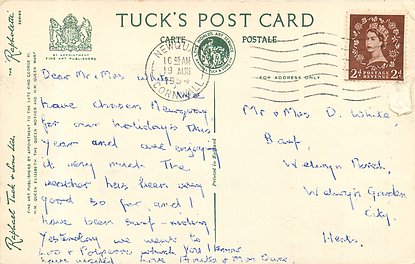 TUCK'S POST CARD
CARTE POSTALE
BY APPOINTMENT
FINE ART PUBLISHERS
FOR ADDRESS ONLY
NEWQUAY
10 45 AM
19 AUG
195
CORNWALL
POSTAGE REVENUE
2D 2D
The "Raphotette" SERIES
Raphael Tuck & Sons Ltd.
FINE ART PUBLISHERS BY APPOINTMENT TO THE LATE KING GEORGE V,
H.M. QUEEN ELIZABETH THE QUEEN MOTHER AND H.M. QUEEN MARY
Printed in England
Dear Mr & Mrs White
We
have chosen Newquay
for our holidays this
year and are enjoying
it very much. The
weather has been very
good so far and I
have been surf-riding
Yesterday we went to
Looe & Polperro which you
have visited. Love
Mr & Mrs D. White,
Welwyn North,
Welwyn Garden
City.
Herts.